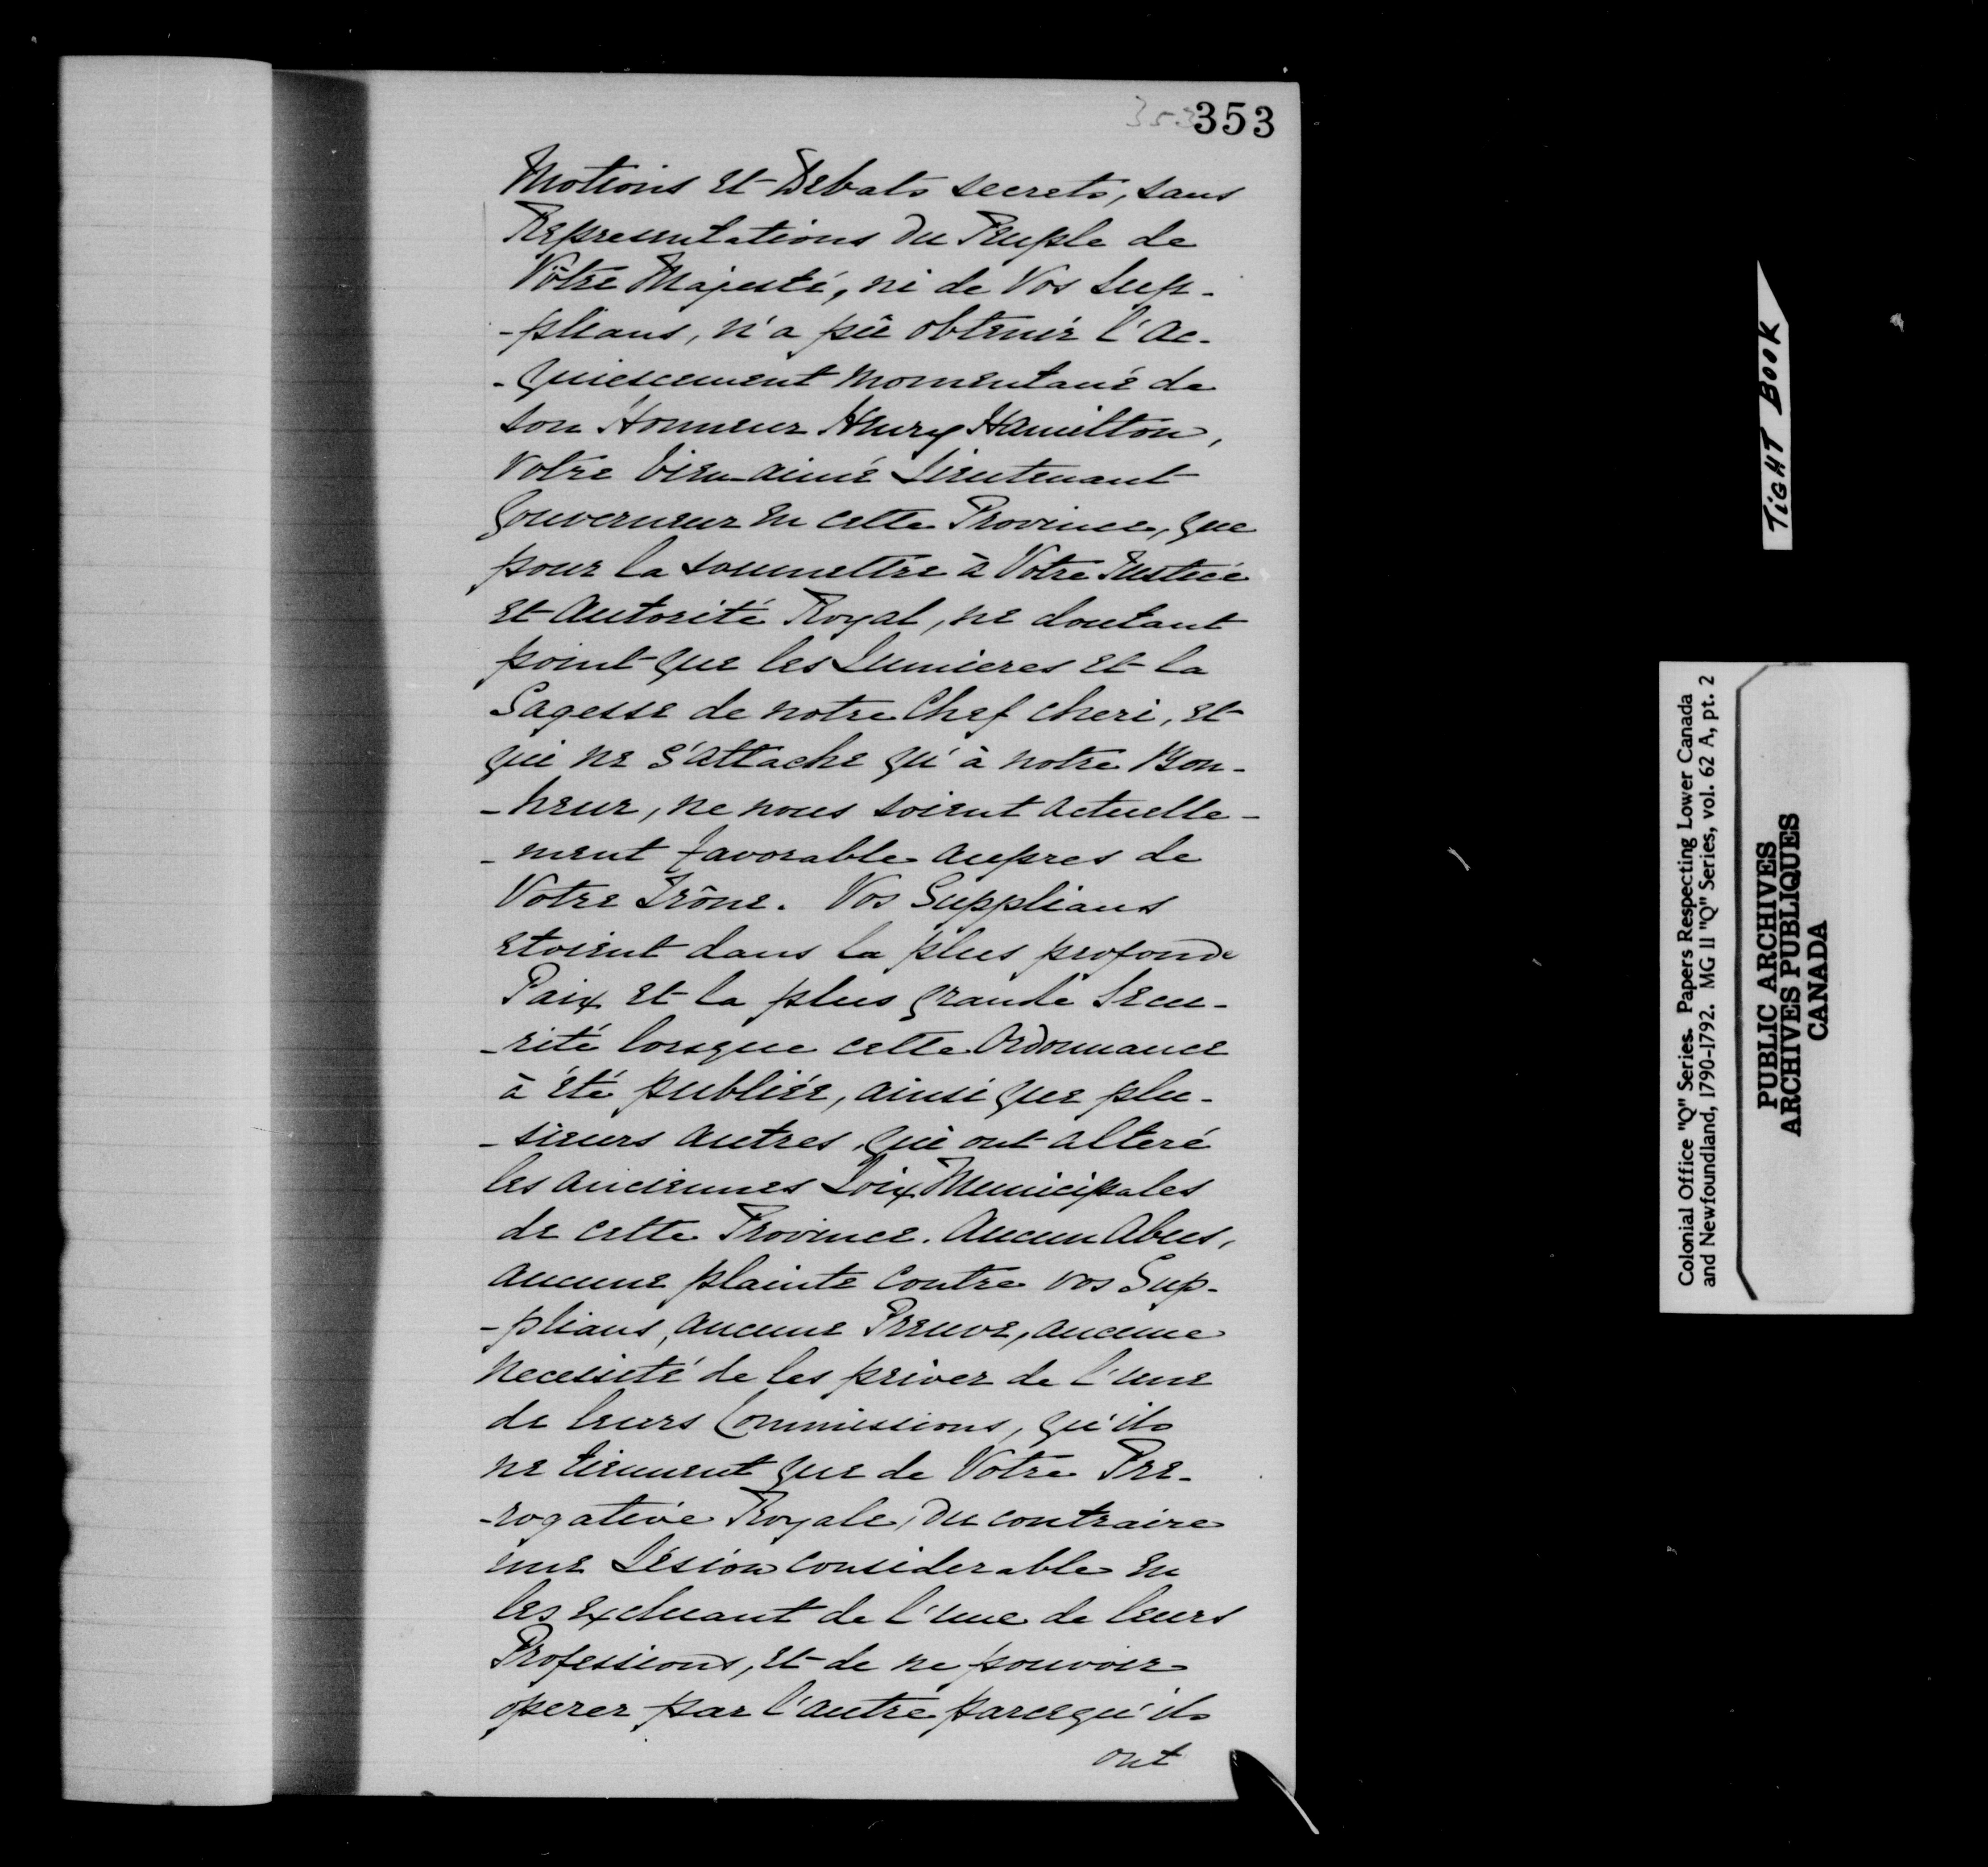 353 353
Motions et Debats secrets, sans
Representations du Peuple de
Vôtre Majesté, ni de Vos Sup-
-plians, n'a pû obtenir l'Ac-
-quiescement momentané de
son Honneur Henry Hamilton,
Votre bien-aimé Lieutenant
Gouverneur en cette Province, que
pour la soumettre à Votre Justice
et Autorité Royal, ne doutant
point que les Lumieres et la
Sagesse de notre Chef cheri, et
qui ne s'attache qu'à notre Bon-
-heur, ne nous soient actuelle-
-ment favorable aupres de
Votre Trône. Vos Supplians
etoient dans la plus profonde
Paix et la plus grande Secu-
-rité lorsque cette Ordonnance
à été publiée, ainsi que plu-
-sieurs autres, qui ont alteré
les anciennes Loix Municipales
de cette Province. Aucun Abus,
aucune plainte contre vos Sup-
-plians, aucune Preuve, aucune
necessité de les priver de l'une
de leurs Commissions, qu'ils
ne tiennent que de Votre Pre-
-rogative Royale, du contraire
une Lésion considerable en
les excluant de l'une de leurs
Professions, et de ne pouvoir
operer par l'autre parcequ'ils
ont
TIGHT BOOK
Colonial Office "Q" Series. Papers Respecting Lower Canada
and Newfoundland, 1790-1792. MG 11 "Q" Series, vol. 62 A, pt. 2
PUBLIC ARCHIVES
ARCHIVES PUBLIQUES
CANADA